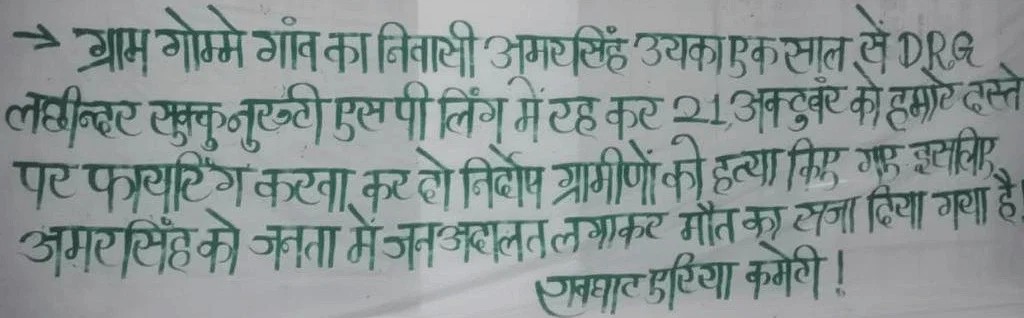 → ग्राम गोम्मे गांव का निवासी अमरसिंह उयका एक साल से DRG
लछीन्दर सुक्कु नुरुटी एसपी लिंग में रह कर 21, अक्टुबर को हमारे दस्ते
पर फायरिंग करवा कर दो निर्दोष ग्रामीणों की हत्या किए गए इसलिए
अमरसिंह को जनता में जन अदालत लगाकर मौत का सजा दिया गया है!
रावघाट एरिया कमेटी !